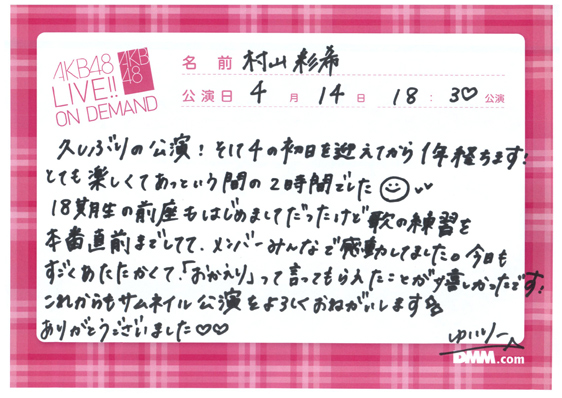 AKB48
LIVE!!
ON DEMAND
AKB
48
名前 村山彩希
公演日 4月14日 18:30公演
久しぶりの公演！そして4の初日を迎えてから1年経ちます！
とても楽しくてあっという間の2時間でした
18期生の前座もはじめましてだったけど歌の練習を
本番直前までしてて、メンバーみんなで感動してました。今日も
すごくあたたかくて、「おかえり」って言ってもらえたことが嬉しかったです！
これからもサムネイル公演をよろしくおねがいします
ありがとうございました♡♡
ゆいりー
DMM.com